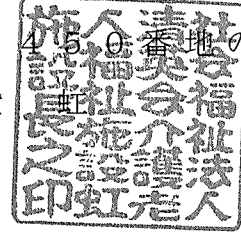 ４５０番地の
虹
社会福祉法人
清英会介護老
人福祉施設虹
施設長之印